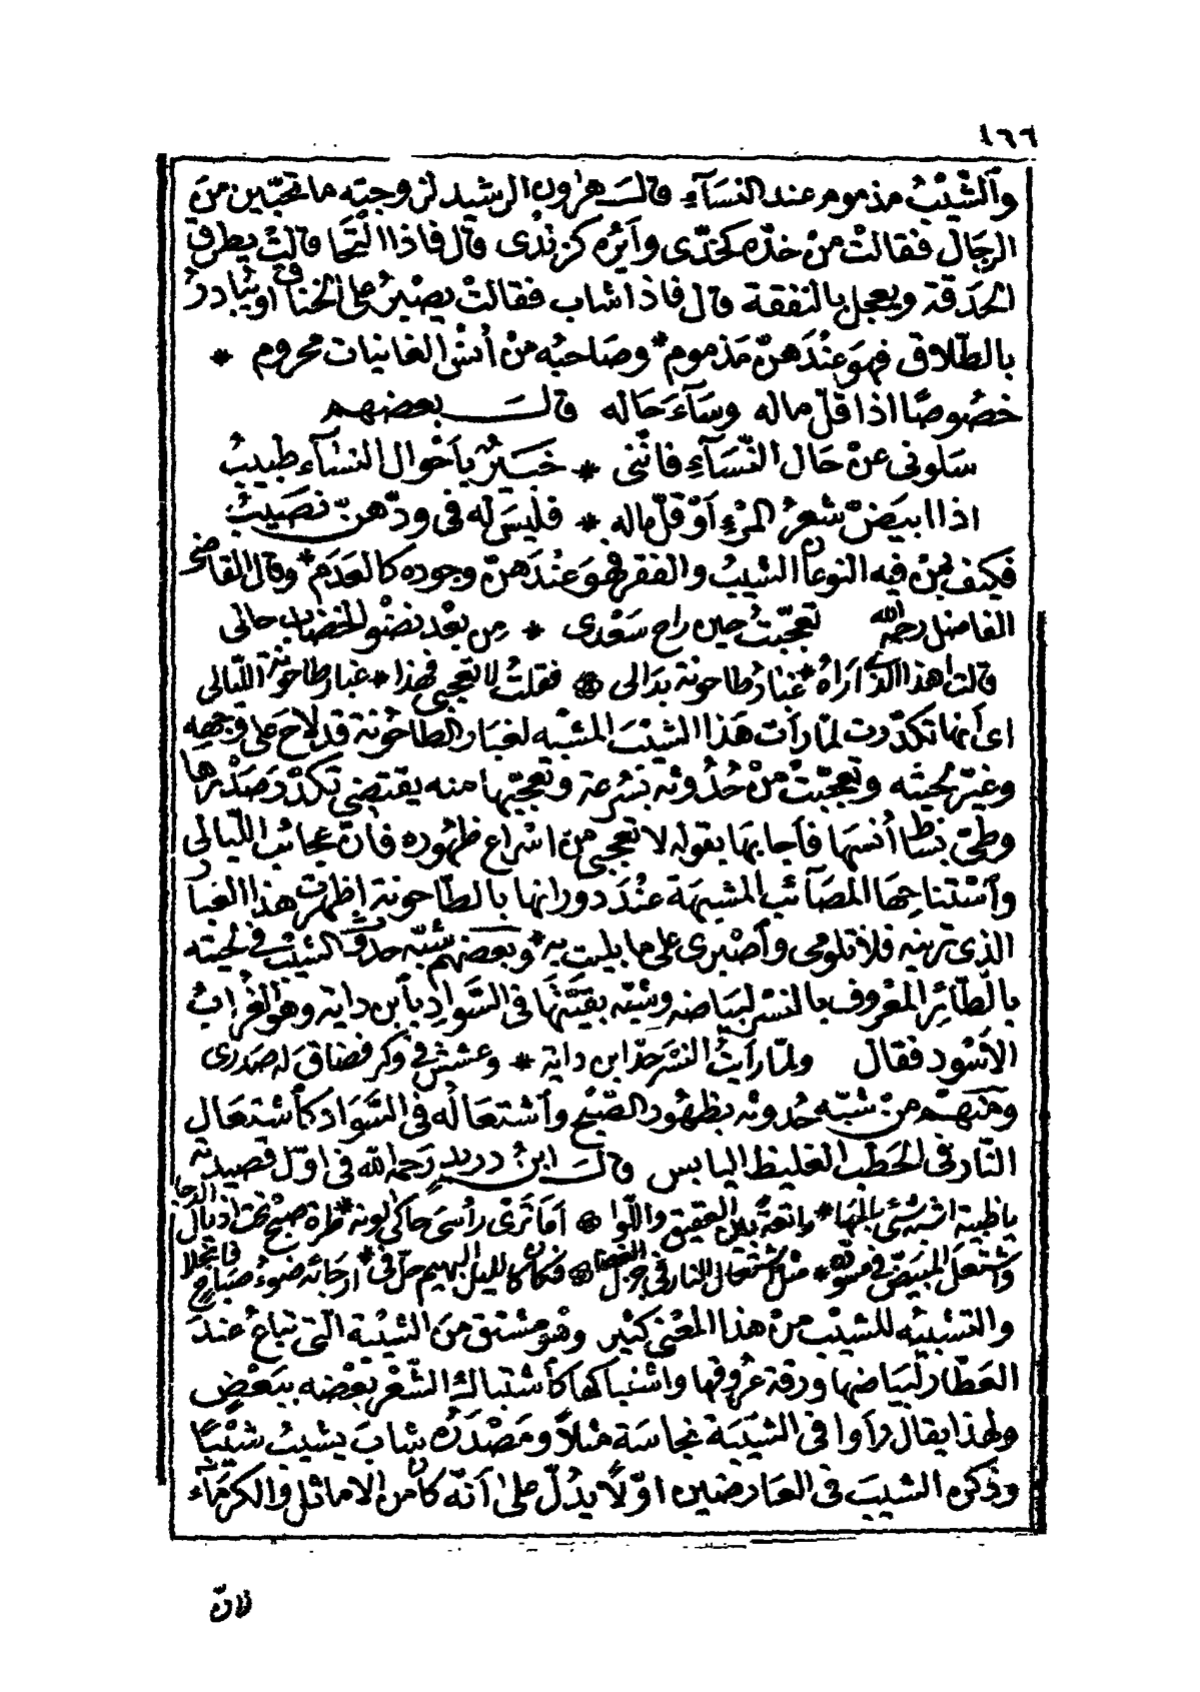 ١٦٦
وٱلشّيْبُ مذموم عند النسَآءِ قالَــ هٰرون الرشيد لزوجته ما تحبّين منَ
الرجَال فقالتْ منْ خدّه كخدّى وأيْره كزندْى قال فاذا الْتَحَا قالتْ يطرقُ
الحَدقة ويعجل بالنفقة قال فاذا شاب فقالتْ يصْبِرُ على الخناق او يُبَادرُ
بالطّلاق فهوَ عنْدَهنّ مَذموم * وصَاحبُه منْ أُنسْ الغانيات محروم *
خصُوصًا اذا قلّ ماله وسَآءَ حَاله قالَــ بعضهم
سَلونى عنْ حَال النّسَآءِ فانّنى * خبَيرٌ بأحْوال النسَآء طبيبُ
اذا ابيَضّ شعرُ المرْءِ أوْ قلّ ماله * فليسَ له فى ودّهنّ نصَيبُ
فكيْف بمنْ فيه النوعان الشيبُ والفقر فهوَ عنْدَهنّ وجوده كالعَدَم * وقال القاضى
الفاضل رحمه الله تعجّبتْ حين راح سَعْدى * من بعْد نضْو الخضاب حالى
قالت اهذا الّذى ارَاهُ * غبارُ طاحونة بدَالى ۞ فقلتُ لا تعجبى فهٰذا * غبار طاحونة اللّيالى
اى أنها تكدّرت لمّا رَأت هَذا الشيْبَ المشبّه لغبَار الطاحُونة قد لاحَ على وَجههِ
وغيّر لحيتَه وتعجّبتْ منْ حُدُوثه بسُرعة وتعجّبها منه يقتضى تكدّرَ صَدْرهَا
وطىّ بسَاط أُنسهَا فأجابهَا بقوله لا تعجبى منْ اسْراع ظهُوره فانّ عجائب اللّيالى
وٱسْتناحهَا المصَآئبَ المشبهَة عنْدَ دورانها بالطّاحونة إظهرت هذا الغبَار
الذى ترينه فلا تلومى وأصْبرى على ما بليت به * وبعضهم شبّه حدوث الشيْبَ فى لحيته
بالطّائِر المعْروف بالنسْر لبيَاضه وشبّه بقيّتهَا فى السّوادِ بأبن داية وهو الغُرابُ
الاسْود فقال ولمّا رأيتُ النسْرَ عزّ ابن داية * وعشش فى وكر فضاقَ له صَدرى
وَمنهـم منْ شبّه حُدوثه بظهُود الصّبْح وٱشتعَاله فى السّوَاد كأشتعَال
النّار فى الحَطَب الغليظ اليابس قالَــ ابنُ دريد رَحمه الله فى اوّل قصيدته
ياظبية اشبَه شىْءٍ بالمهَا * راتعةً بين العقيق واللّوا ۞ أمَا ترَىْ رأسىَ حاكىٰ لونه * طرة صبْح تحت اذيال الدجا
وٱشتعَل المبيَضّ فى مسوَدّه * مثل اشتعال النار فى جزل الغضا ۞ فكانَ كالليل البهيم حلّ فى * ارجائه ضوءُ صَبَاحٍ فانجلا
والتشبيه للشيْب منْ هذا المعْنىٰ كثير وهُو مشتق منَ الشيْبة الّتى تباعُ عندَ
العَطّار لبَياضهَا ورقة عُروقهَا واشتباكهَا كأشتباك الشّعْر بعْضه ببَعْضٍ
ولهذا يقال رأوا فى الشيْبَة نجاسَة مثلًا ومَصْدرُه شابَ يشيبُ شيْبًا
وذكره الشيبَ فى العَارضين اوّلًا يدُلّ علىٰ أنّه كان من الاماثل والكرمَآء
لانّ